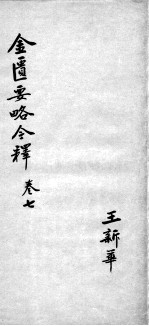 金匱要略今釋 卷七
王新華